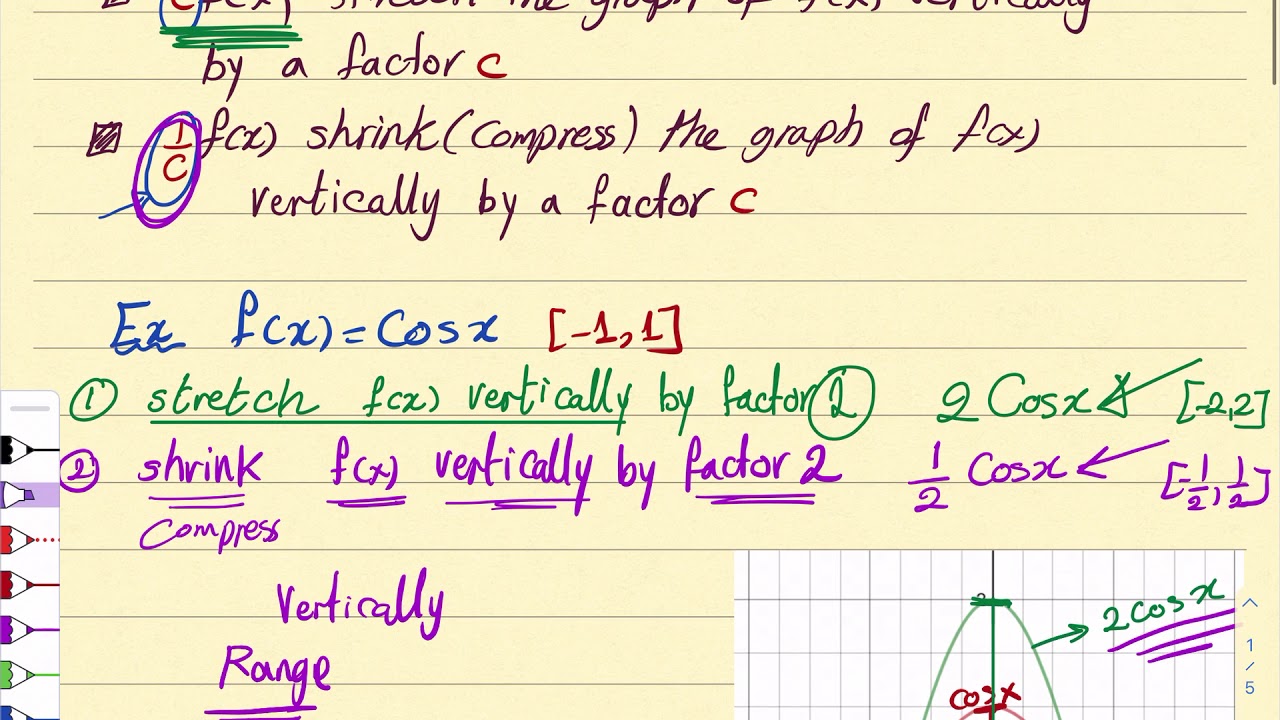 c f(x) stretch the graph of f(x) vertically
by a factor c
1/c f(x) shrink (compress) the graph of f(x)
vertically by a factor c
Ex f(x) = Cosx [-1,1]
① stretch f(x) vertically by factor 2 2 Cosx [-2,2]
② shrink f(x) vertically by factor 2 1/2 Cosx [-1/2, 1/2]
Compress
Vertically
Range
2
2cosx
cosx
1
/
5